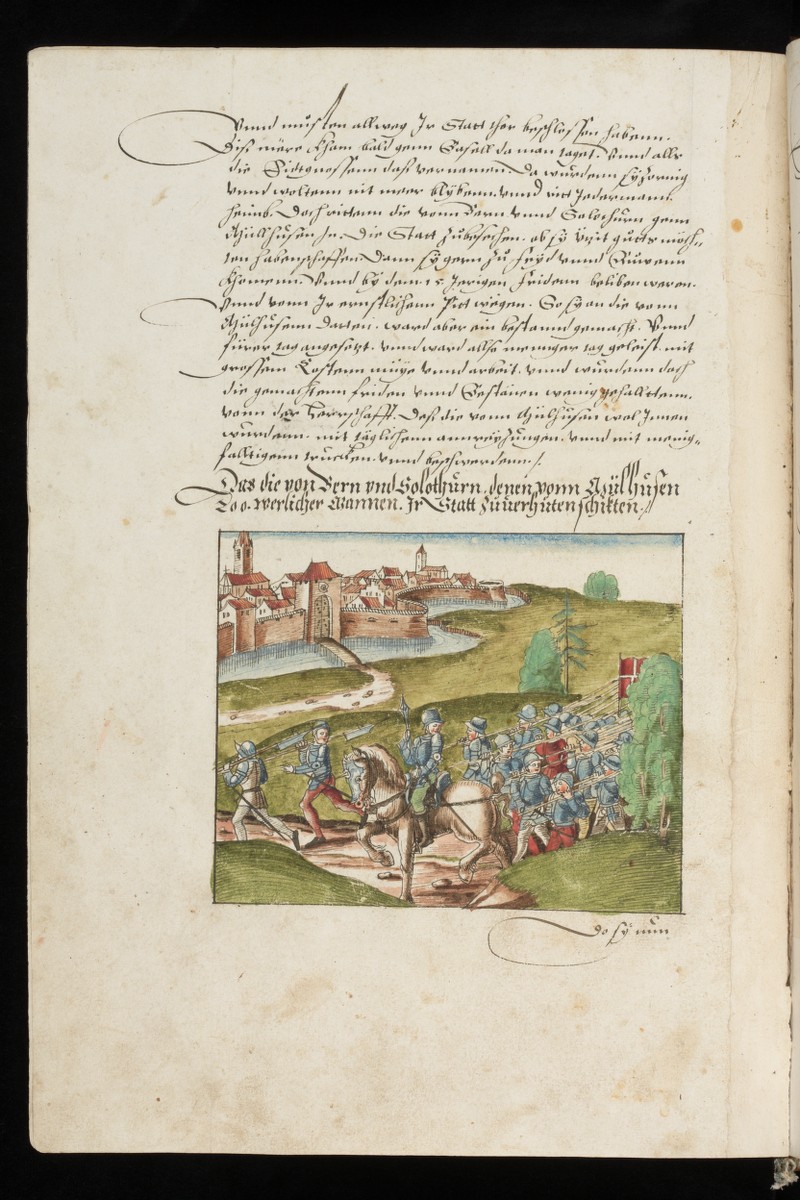 Vnnd musten allweg Jr Statt thor beschlossen habenn.
Diss märe kham bald genn Basell da man taget. Vnnd alls
die Eidtgnossenn dass vernamen. Da wurdenn sÿ zornig
vnnd woltenn nit meer blÿbenn. vnnd ritt Jederman
heimb. Doch rittenn die vonn Bern vnnd Solothurn genn
Mülhusen Jn. Die Statt zubesechen. ob sÿ ützit guts möch-
ten haben schaffen. Dann sÿ gern zu frÿd vnnd Ruwenn
khomenn. Vnnd bÿ dem 15 Jerigen friden beliben weren.
Vnnd vonn Jr ernstlichenn Pitt wegen. So sÿ an die vonn
Mülhusenn datten. ward aber ein bestannd gemacht. Vnnd
fürer tag angesetzt. vnnd ward allso menger tag geleist. mit
grossem Costenn müÿe vnnd arbeit. vnnd wurdenn doch
die gemachtenn friden vnnd Bestänen wenig gehalttenn.
vonn der Herrschafft. Dess die vonn Mülhusen wol Jnnen
wurdenn. mit täglichenn annreÿzungen. vnnd mit menig-
falltigenn trucken. vnnd beschwerdenn./.
Das die von Bern vnd Solothurn. denen vonn Mülhusen
200. werlicher Mannen. Jr Statt zuuerhüten schikten./
Do sÿ nun